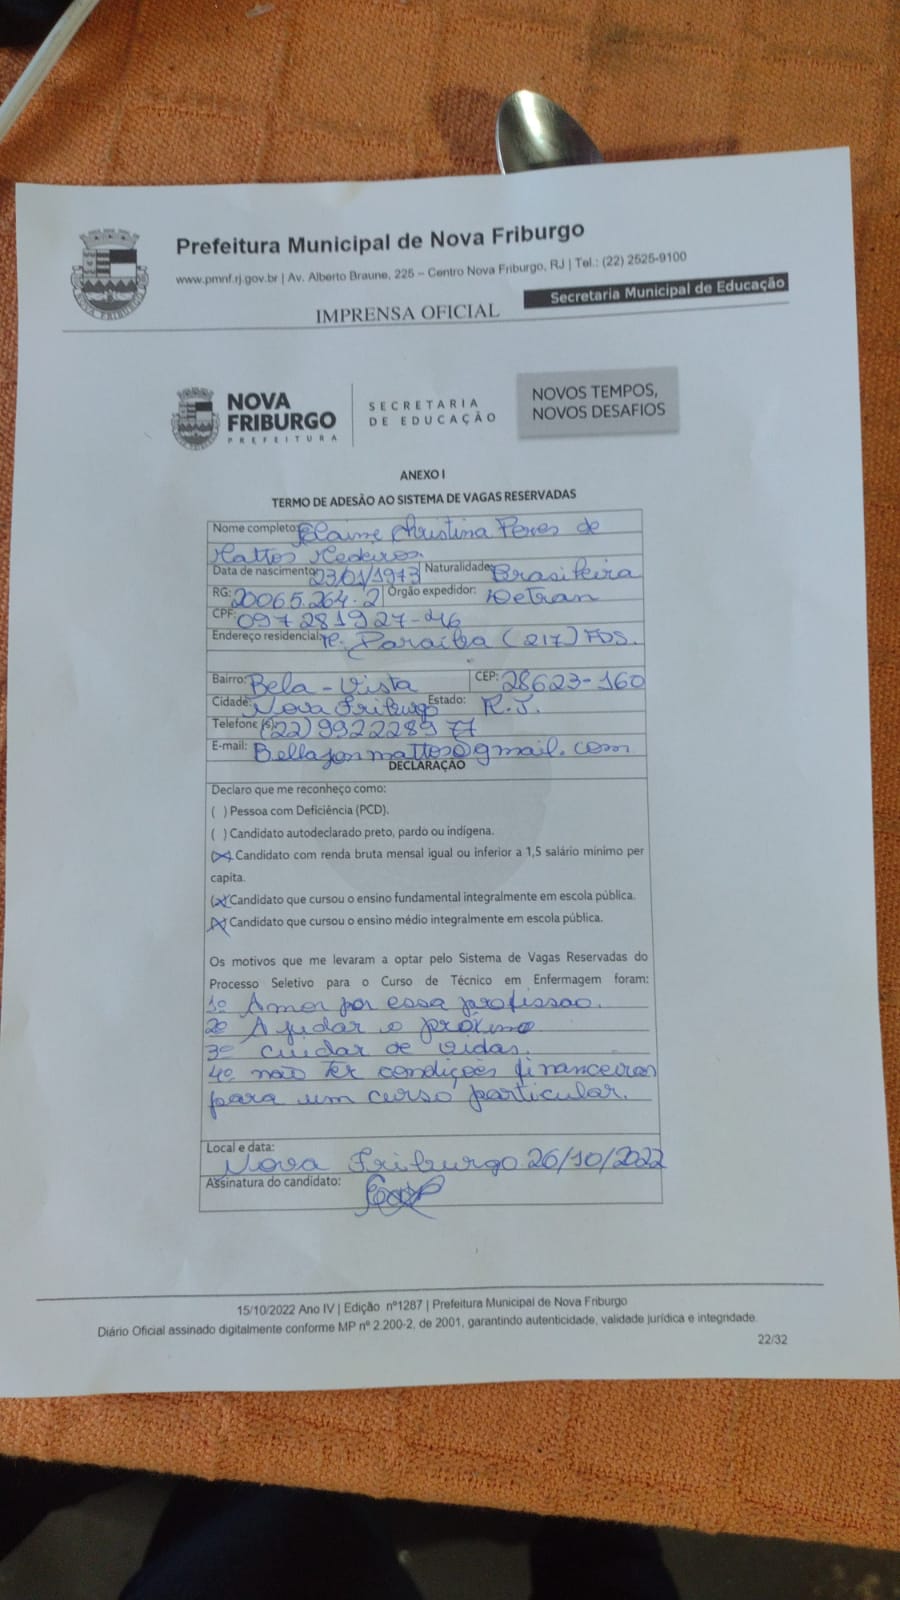 Prefeitura Municipal de Nova Friburgo
www.pmnf.rj.gov.br | Av. Alberto Braune, 225 – Centro Nova Friburgo, RJ | Tel.: (22) 2525-9100
Secretaria Municipal de Educação
IMPRENSA OFICIAL
NOVA FRIBURGO
NOVA
FRIBURGO
PREFEITURA
SECRETARIA
DE EDUCAÇÃO
NOVOS TEMPOS,
NOVOS DESAFIOS
ANEXO I
TERMO DE ADESÃO AO SISTEMA DE VAGAS RESERVADAS
Nome completo: Elaine Christina Peres de
Mattos Medeiros.
Data de nascimento: 23/01/1973 Naturalidade: Brasileira
RG: 20065.264.2 Órgão expedidor: Detran
CPF: 097281927-46
Endereço residencial: R. Paraíba (217) FDS.
Bairro: Bela-Vista CEP: 28623-160
Cidade: Nova Friburgo Estado: R.J.
Telefone (s): (22) 992228977
E-mail: @gmail.com
DECLARAÇÃO
Declaro que me reconheço como:
( ) Pessoa com Deficiência (PCD).
( ) Candidato autodeclarado preto, pardo ou indígena.
(X) Candidato com renda bruta mensal igual ou inferior a 1,5 salário mínimo per
capita.
(X) Candidato que cursou o ensino fundamental integralmente em escola pública.
(X) Candidato que cursou o ensino médio integralmente em escola pública.
Os motivos que me levaram a optar pelo Sistema de Vagas Reservadas do
Processo Seletivo para o Curso de Técnico em Enfermagem foram:
1º Amor por essa profissao.
2º Ajudar o próximo
3º cuidar de vidas.
4º não ter condições financeiras
para um curso particular.
Local e data:
Nova Friburgo 26/10/2022
Assinatura do candidato:
15/10/2022 Ano IV | Edição nº1287 | Prefeitura Municipal de Nova Friburgo
Diário Oficial assinado digitalmente conforme MP nº 2.200-2, de 2001, garantindo autenticidade, validade jurídica e integridade.
22/32